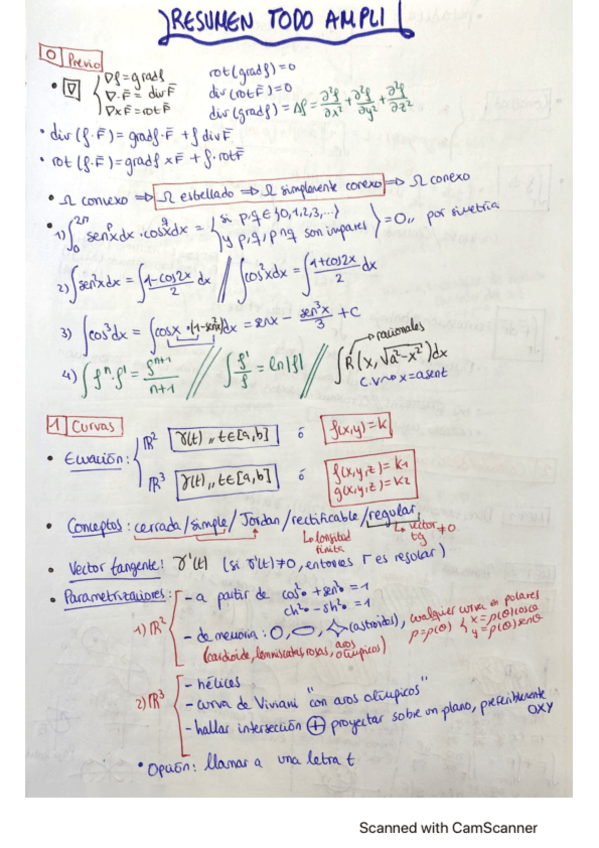 RESUMEN TODO AMPLI
0 Previo
• ∇ { ∇f = gradf   rot(gradf) = 0
∇·F̄ = divF̄   div(rotF̄) = 0
∇×F̄ = rotF̄   div(gradf) = Δf = ∂²f/∂x² + ∂²f/∂y² + ∂²f/∂z²
• div(f·F̄) = gradf·F̄ + f divF̄
• rot(f·F̄) = gradf × F̄ + f·rotF̄
• Ω convexo ⇒ Ω estrellado ⇒ Ω simplemente conexo ⇒ Ω conexo
• 1) ∫₀^2π sen^p x dx · cos^q x dx = { si p,q ∈ {0,1,2,3,...} y p, q, p∧q son impares } = 0,, por simetría
2) ∫sen²x dx = ∫ (1-cos2x)/2 dx // ∫cos²x dx = ∫ (1+cos2x)/2 dx
3) ∫cos³dx = ∫cosx·(1-sen²x)dx = senx - sen³x/3 + C
4) ∫fⁿ·f' = fⁿ⁺¹/(n+1) // ∫ f'/f = ln|f| // ∫R(x, √(a²-x²))dx → racionales
c.v ⇝ x = a sent
1 Curvas
• Ecuación: { ℝ² γ(t),, t∈[a,b] ó f(x,y) = k
ℝ³ γ(t),, t∈[a,b] ó f(x,y,z) = k1
g(x,y,z) = k2
• Conceptos: cerrada/simple/Jordan/rectificable/regular
↳ longitud finita ↳ vector tg ≠ 0
• Vector tangente: γ'(t) (si γ'(t) ≠ 0, entonces Γ es regular)
• Parametrizaciones:
1) ℝ² { - a partir de cos²θ + sen²θ = 1
ch²θ - sh²θ = 1
- de memoria: (astroides), cualquier curva en polares
ρ = ρ(θ) { x = ρ(θ)cosθ
y = ρ(θ)senθ
(cardioide, lemniscatas, rosas, aros olímpicos)
2) ℝ³ { - hélices
- curva de Viviani "con aros olímpicos"
- hallar intersección ⊕ proyectar sobre un plano, preferiblemente OXY
• Opción: llamar a una letra t
Scanned with CamScanner